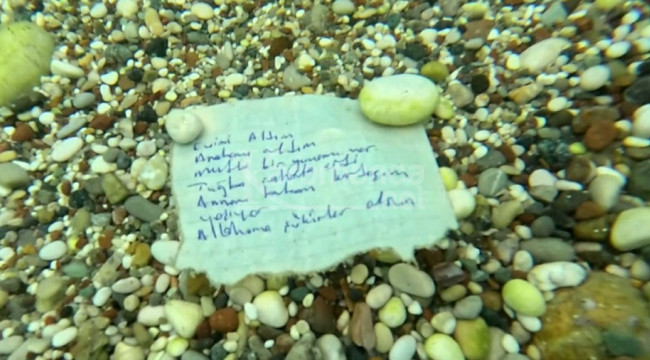 Evimi Aldım
Arabamı aldım
mutlu bir yuvamız var
Tuğba
Annem babam kardeşim
yaşıyor
Allahıma şükürler olsun